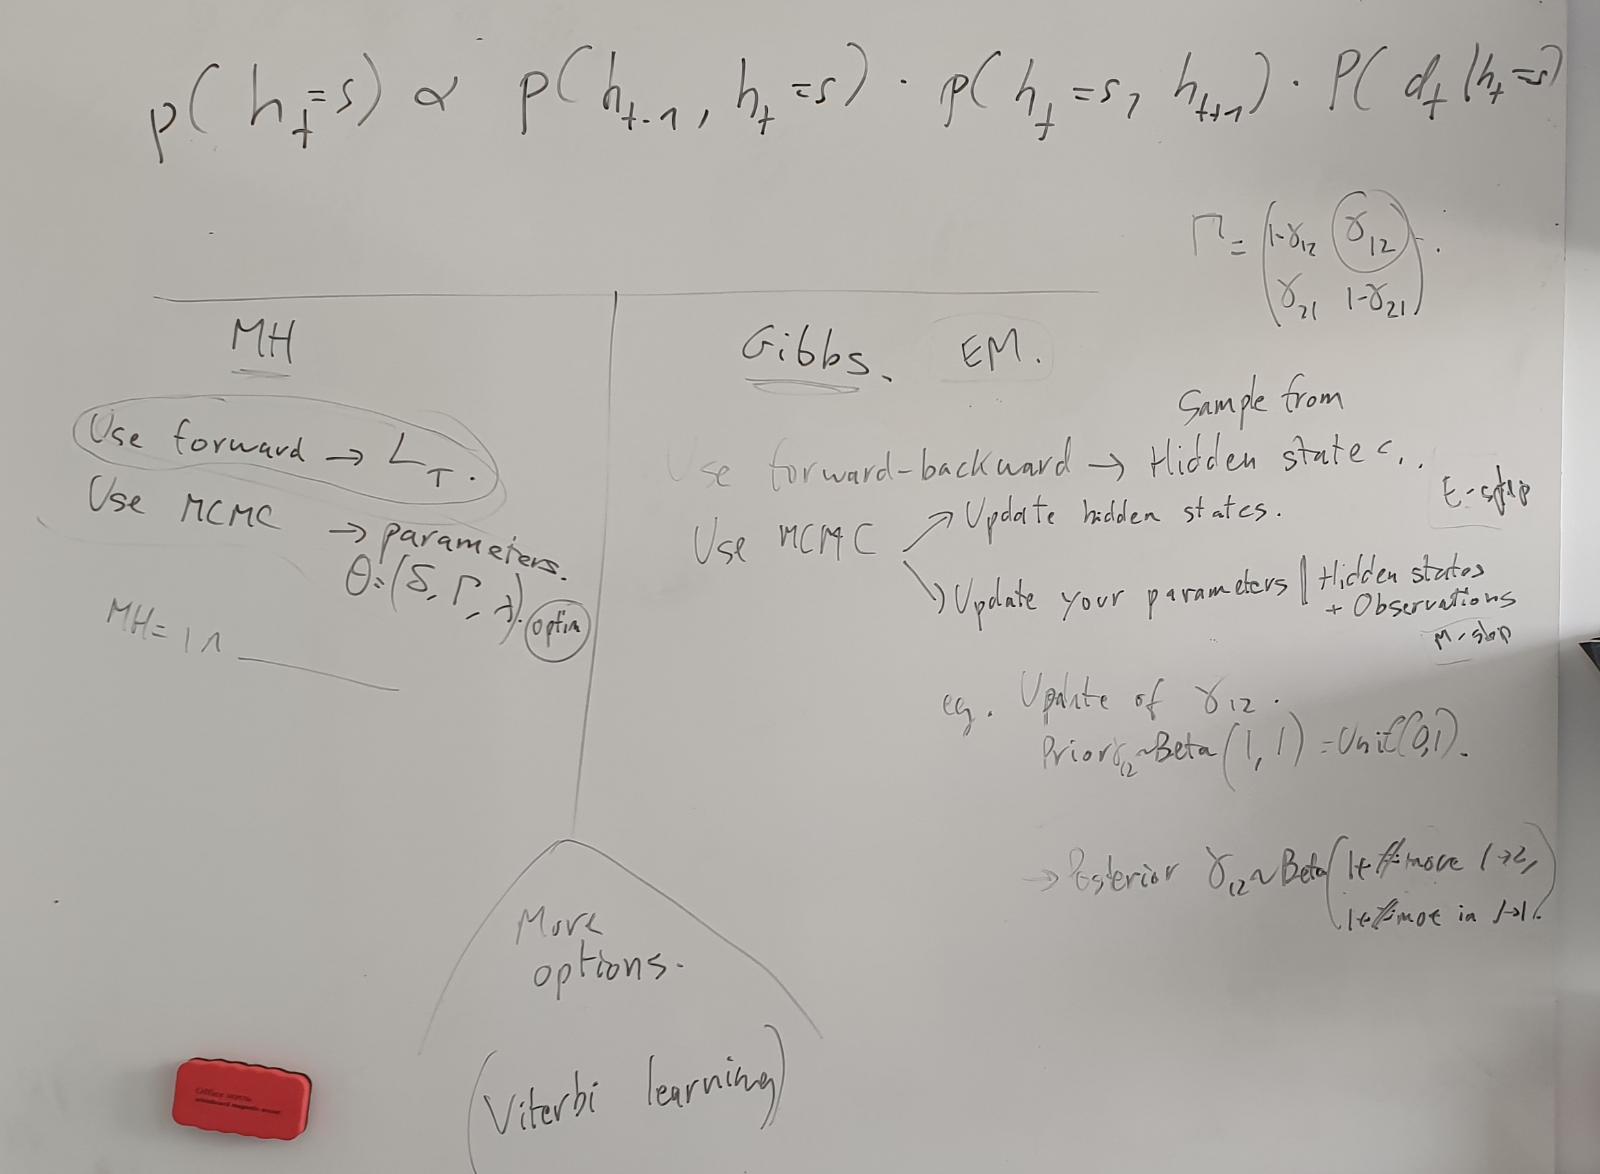 p(h_t=s) ∝ p(h_{t-1}, h_t=s) · p(h_t=s, h_{t+1}) · P(d_t | h_t=s)
Γ = (1-γ12 γ12
γ21 1-γ21)
MH
Use forward → L_T.
Use MCMC → parameters.
θ=(δ, Γ, λ). optim
MH = 1 ∧
Gibbs. EM.
Sample from
Use forward-backward → Hidden states..
E-step
Use MCMC
→ Update hidden states.
→ Update your parameters | Hidden states
+ Observations
M-step
eg. Update of γ12.
Prior γ12 ~ Beta(1, 1) = Unif(0,1).
→ Posterior γ12 ~ Beta(1+#move 1→2,
1+# in 1→1).
More
options.
(Viterbi learning)
whiteboard magnetic eraser